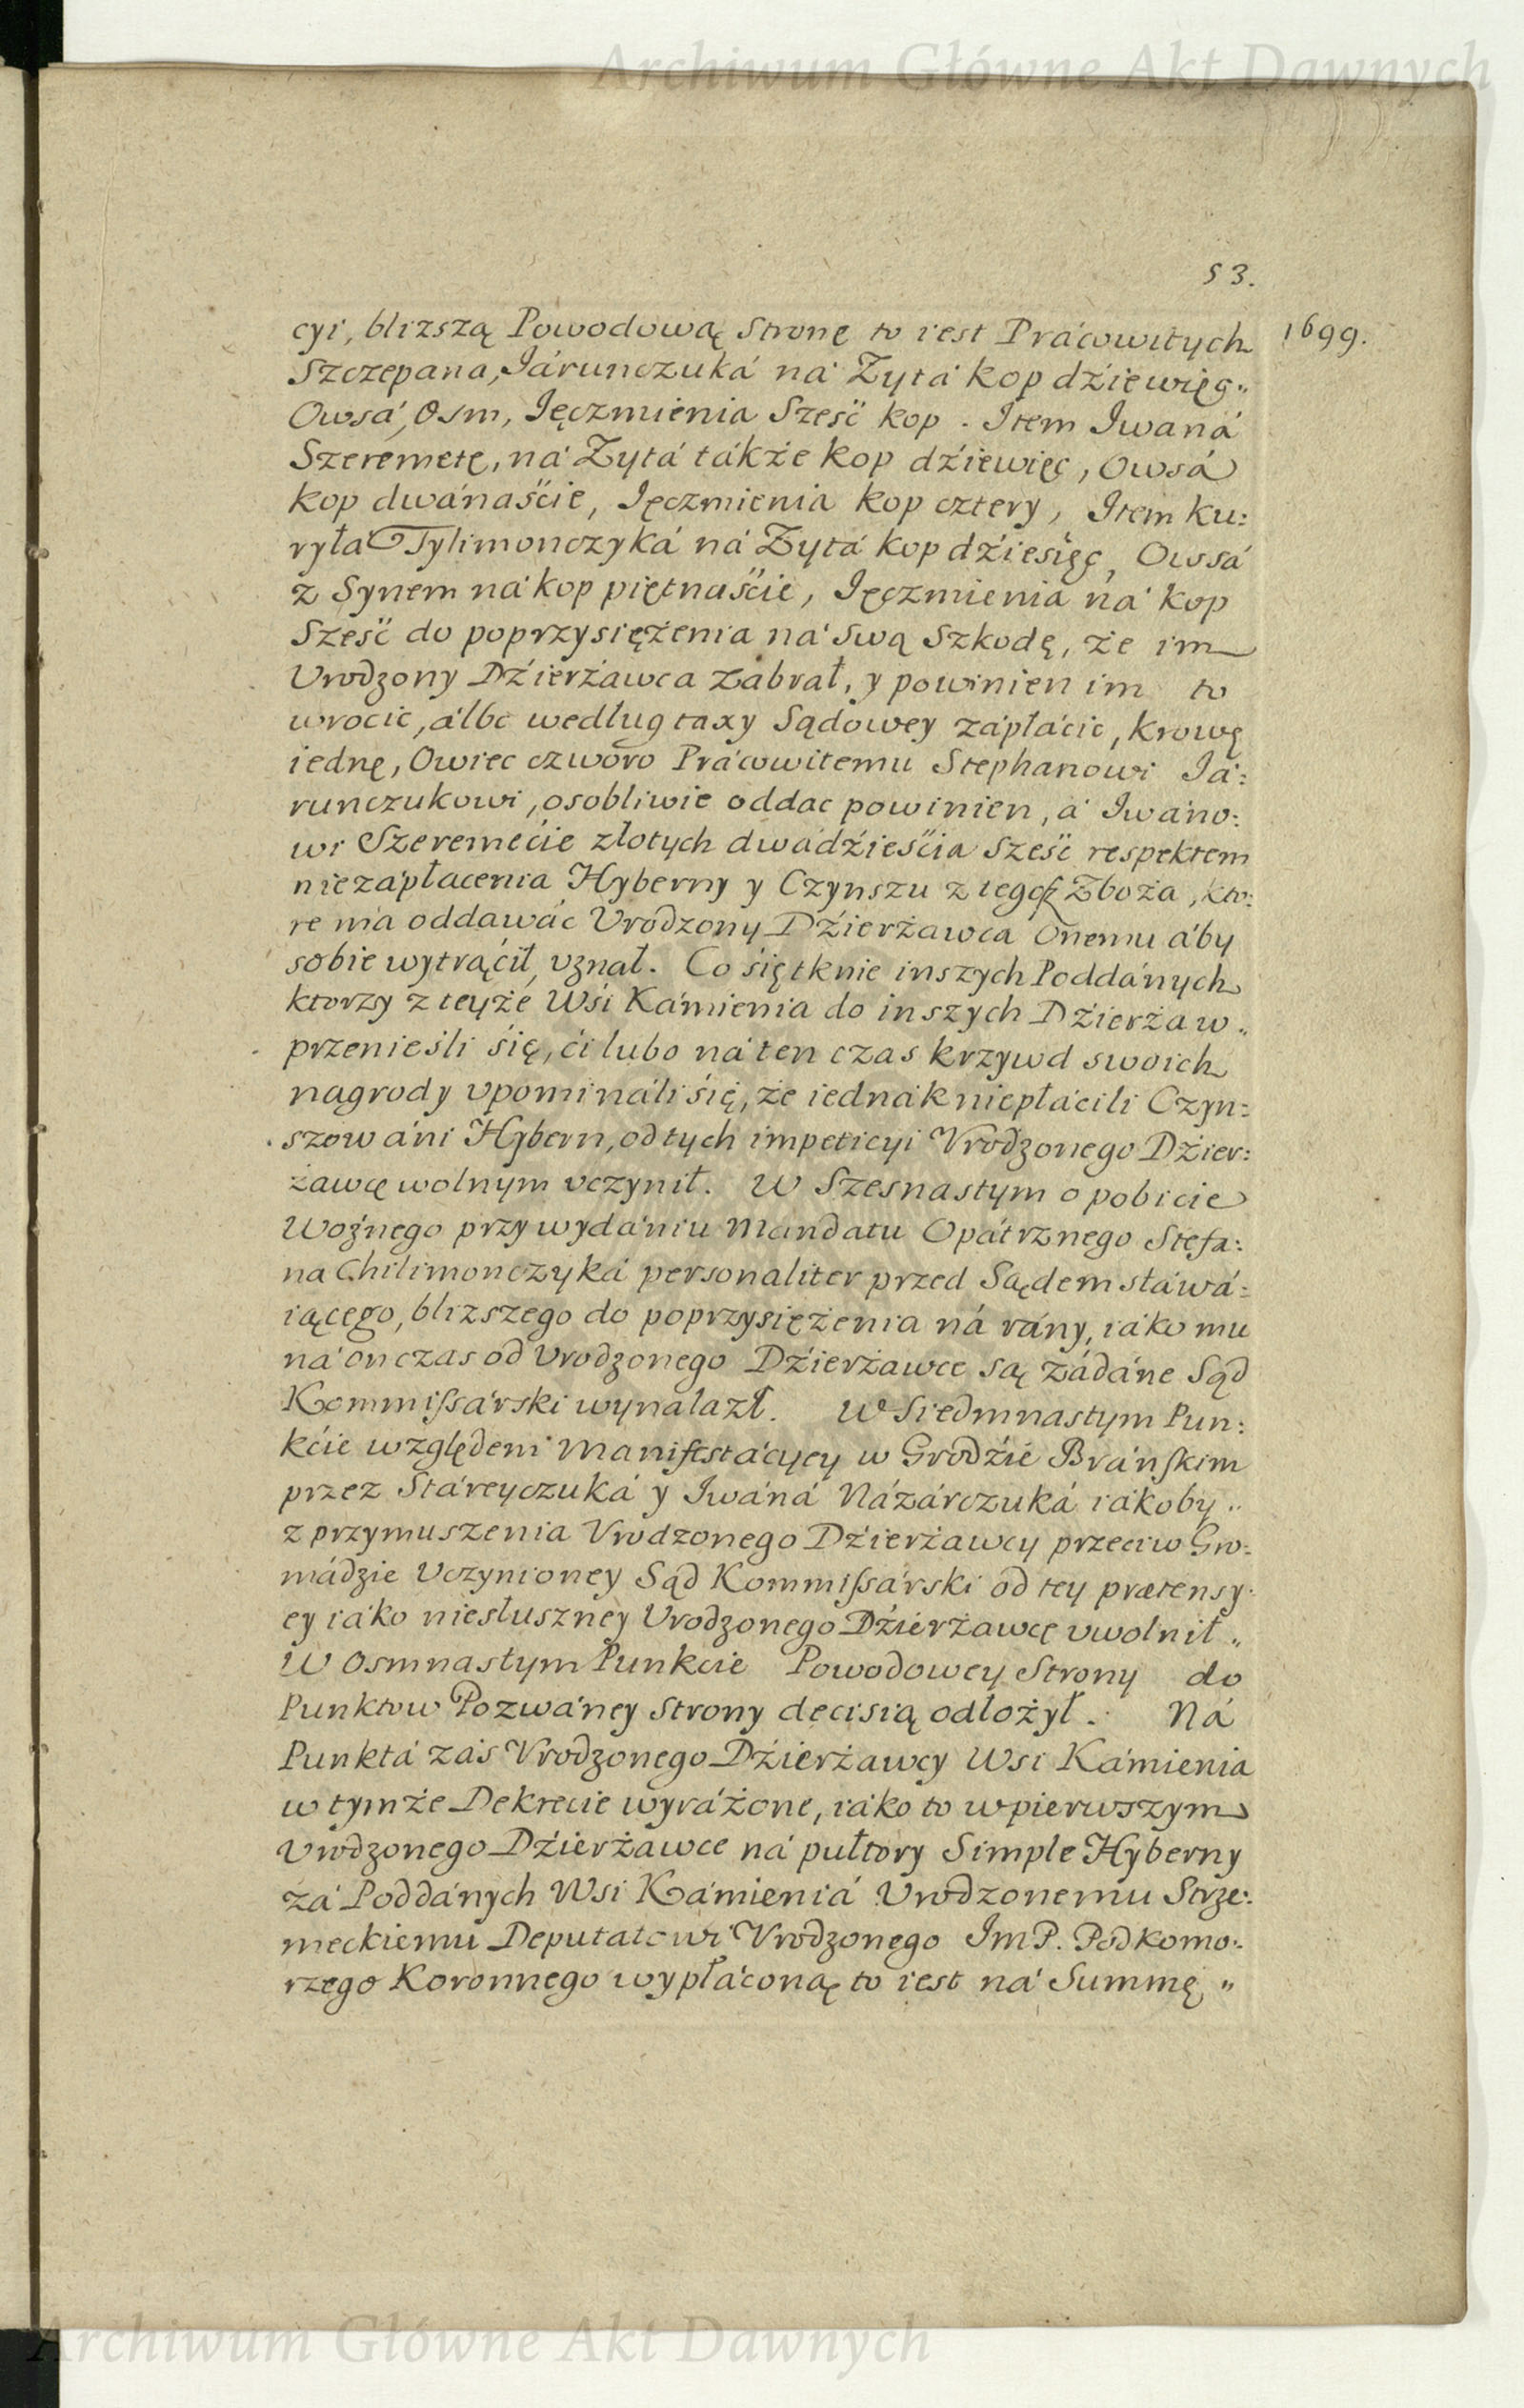 Archiwum Główne Akt Dawnych
53.
1699.
cyi, blizszą Powodową Stronę to iest Prácowitych
Szczepana, Járunczuká ná Zytá kop dźiewięc„
Owsá, Osm, Jęczmienia Sześć kop. Item Jwaná
Szeremetę, ná Zytá tákże kop dźiewięc, Owsá
kop dwánaście, Jęczmienia kop cztery, Item Ku:
ryłá Tylimonczyká ná Zytá kop dźiesięć, Owsá
z Synem ná kop piętnaście, Jęczmienia ná kop
Sześć do poprzysiężenia ná swą Szkodę, że im
Urodzony Dźierżawca zabrał, y powinien im to
wrocic, álbo według taxy Sądowey zápłácic, Krowę
iednę, Owiec czworo Prácowitemu Stephanowi Já:
runczukowi, osobliwie oddac powinien, á Jwáno:
wi Szeremećie złotych dwádźieśćia Sześć respektem
niezápłacenia Hyberny y Czynszu z tegoż Zboża, kto:
re ma oddawác Vrodzony Dźierżawca Onemu áby
sobie wytrąćił, vznał. Co się tknie inszych Poddánych
ktorzy z teyże Wśi Kámienia do inszych Dźierżaw„
przenieśli śię, ći lubo ná ten czas krzywd swoich
nagrody vpomináli śię, że iednák niepłácili Czyn:
szow áni Hybern, od tych impeticyi Vrodzonego Dźier:
żawcę wolnym vczynił. W Szesnastym o pobicie
Woźnego przy wydániu Mandatu Opátrznego Stefa:
na Chilimonczyká personaliter przed Sądem stáwá:
iącego, blizszego do poprzysiężenia ná rány, iáko mu
ná on czas od Vrodzonego Dźierżawce są zádáne Sąd
Kommissárski wynalazł. W Siedmnastym Pun:
kćie względem Manifestácyey w Grodźie Bráńskim
przez Stáreyczuká y Jwáná Názárczuká iákoby„
z przymuszenia Vrodzonego Dźierżawcy przeciw Gro:
mádzie Vczynioney Sąd Kommissárski od tey prætensy:
ey iáko niesłuszney Urodzonego Dźierżawcę vwolnił„
W Osmnastym Punkcie Powodowey Strony do
Punktow Pozwáney Strony decisią odłożył. Ná
Punktá záś Vrodzonego Dźierżawcy Wsi Kámienia
w tymże Dekrecie wyráżone, iáko to w pierwszym
Vrodzonego Dźierżawce ná pułtory Simple Hyberny
zá Poddánych Wsi Kámieniá Vrodzonemu Strze:
meckiemu Deputatowi Vrodzonego JmP. Podkomo:
rzego Koronnego wypłáconą to iest ná Summę„
Archiwum Główne Akt Dawnych